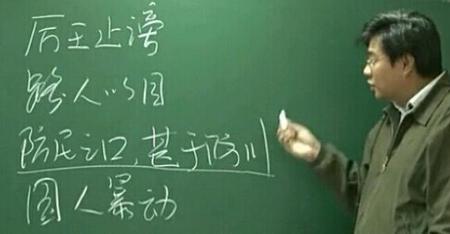 厉王止谤
路人以目
防民之口,甚于防川
国人暴动